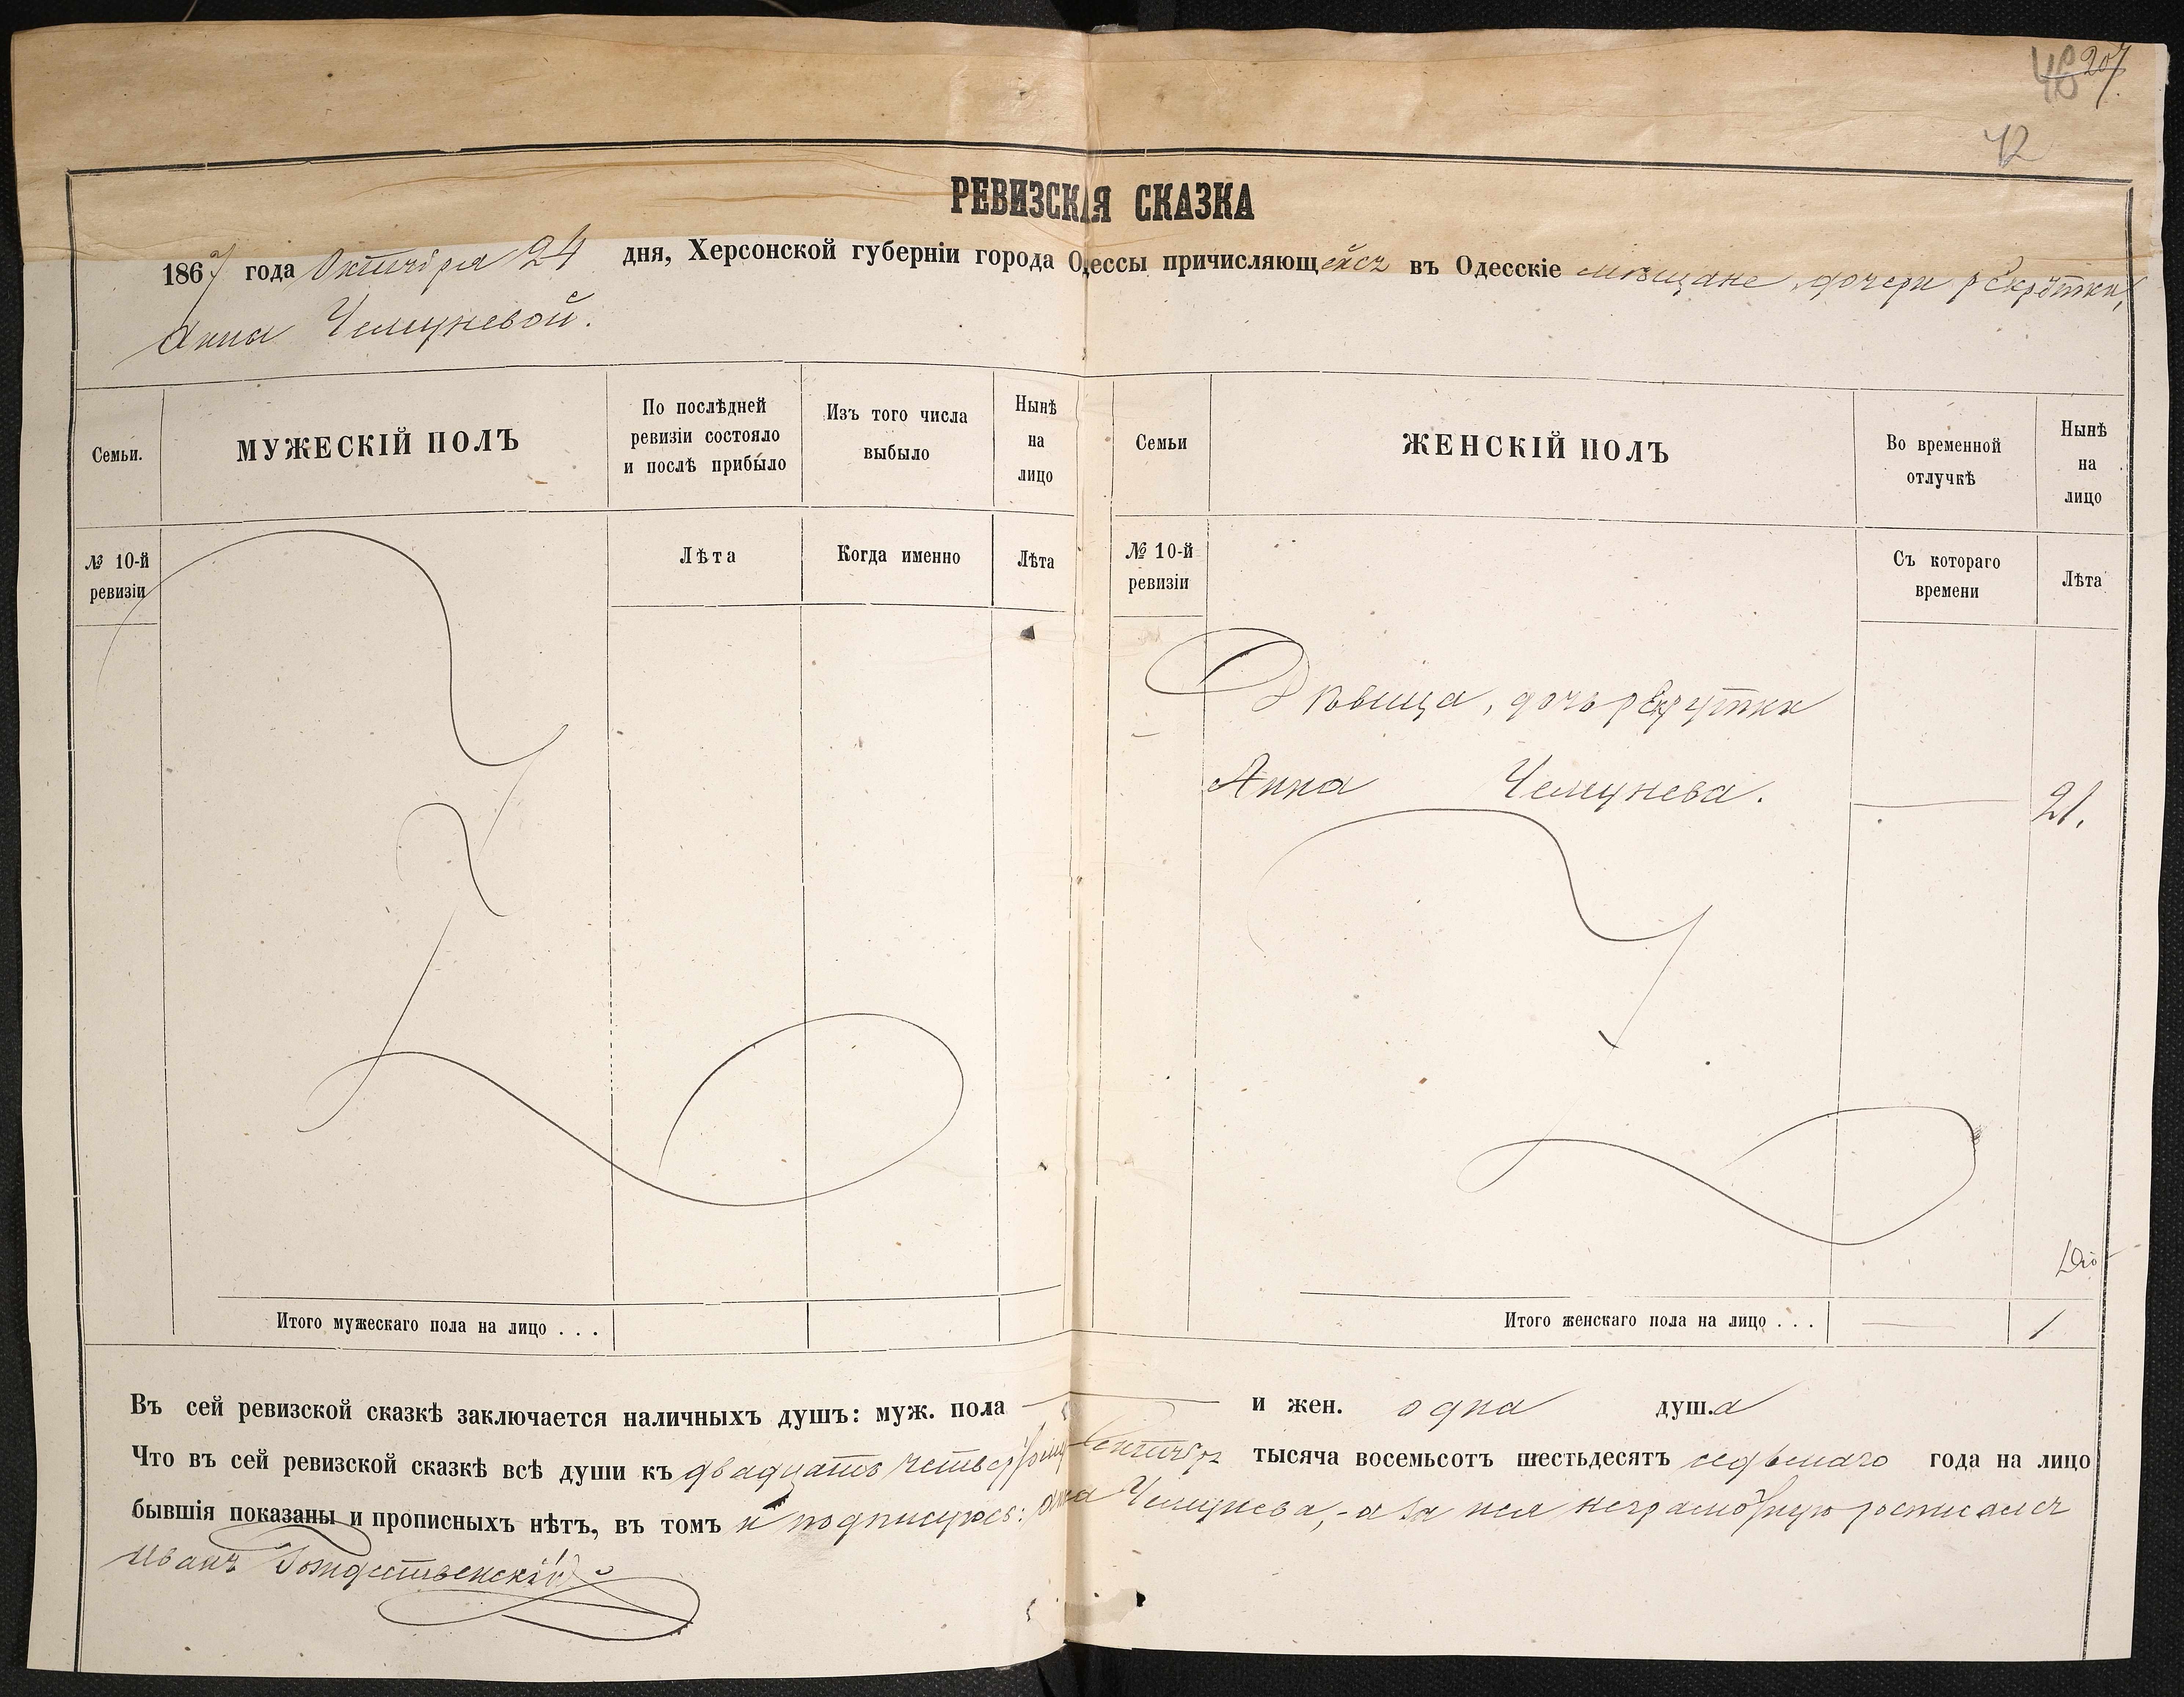 48 207
42
РЕВИЗСКАЯ СКАЗКА
1867 года Октября 24 дня, Херсонской губерніи города Одессы причисляющейся въ Одесскіе мѣщане, дочери рекрутки,
Анны Чемуневой.
Семьи.
МУЖЕСКІЙ ПОЛЪ
По послѣдней
ревизіи состояло
и послѣ прибыло
Изъ того числа
выбыло
Нынѣ
на
лицо
Семьи
ЖЕНСКІЙ ПОЛЪ
Во временной
отлучкѣ
Нынѣ
на
лицо
№ 10-й
ревизіи
Лѣта
Когда именно
Лѣта
№ 10-й
ревизіи
Съ котораго
времени
Лѣта
Дѣвица, дочь рекрутки
Анна Чемунева.
21.
Итого мужескаго пола на лицо . . .
Итого женскаго пола на лицо . . .
1
Въ сей ревизской сказкѣ заключается наличныхъ душъ: муж. пола — и жен. одна душ.а
Что въ сей ревизской сказкѣ всѣ души къ двадцать четвертому Октября тысяча восемьсотъ шестьдесятъ седьмаго года на лицо
бывшія показаны и прописныхъ нѣтъ, въ томъ и подписуюсь: Анна Чемунева, - а за нея неграмотную росписался
Иванъ Рождественскій